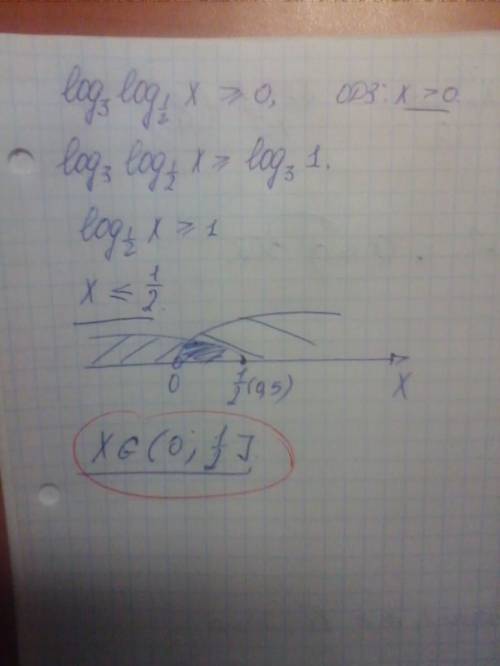 log₃ log_{1/2} x ≥ 0, ОДЗ: x > 0.
log₃ log_{1/2} x ≥ log₃ 1.
log_{1/2} x ≥ 1
x ≤ 1/2.
0 1/2 (0,5) X
x ∈ (0; 1/2]